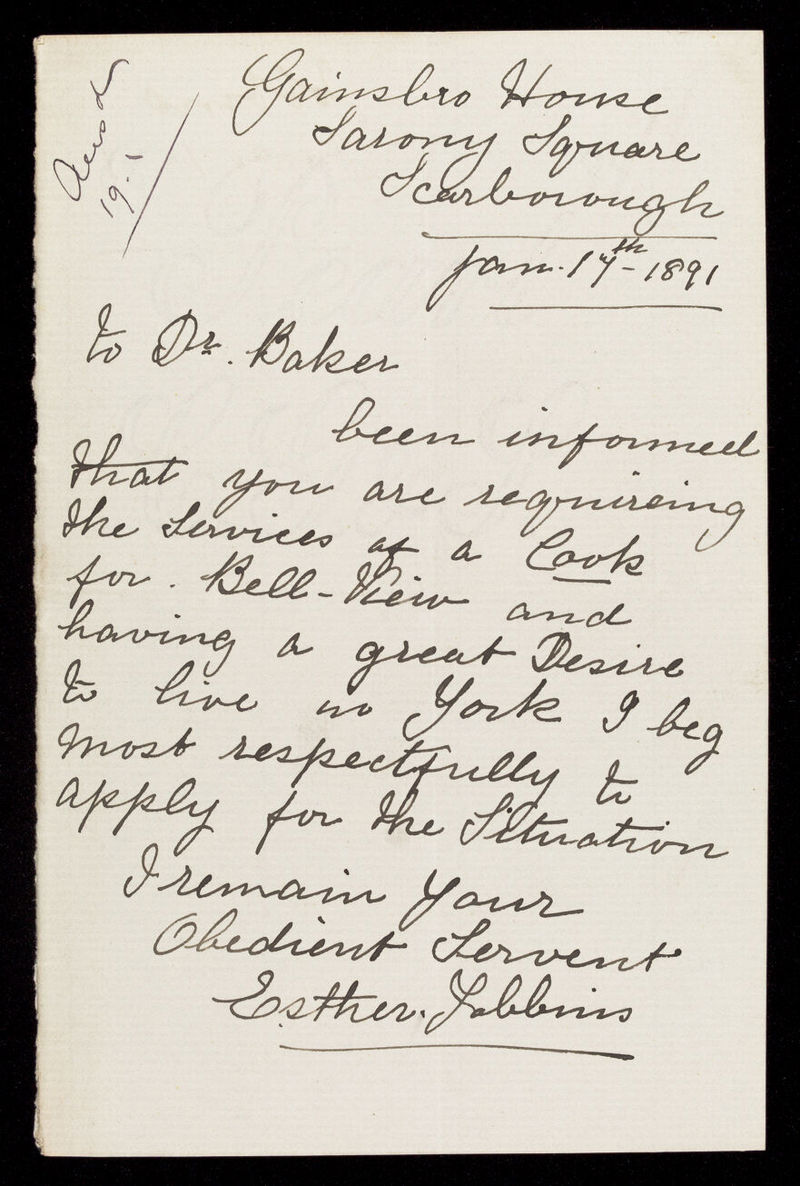 Ansd
19.1
Gainsbro House
Sarony Square
Scarborough
Jan. 17th - 1891
to Dr. Baker
been informed
that you are requireing
the Services of a Cook
for. Bell-View and
having a great Desire
to live in York I beg
most respectfully to
apply for the Situation
I remain Your
Obedient Servent
Esther.